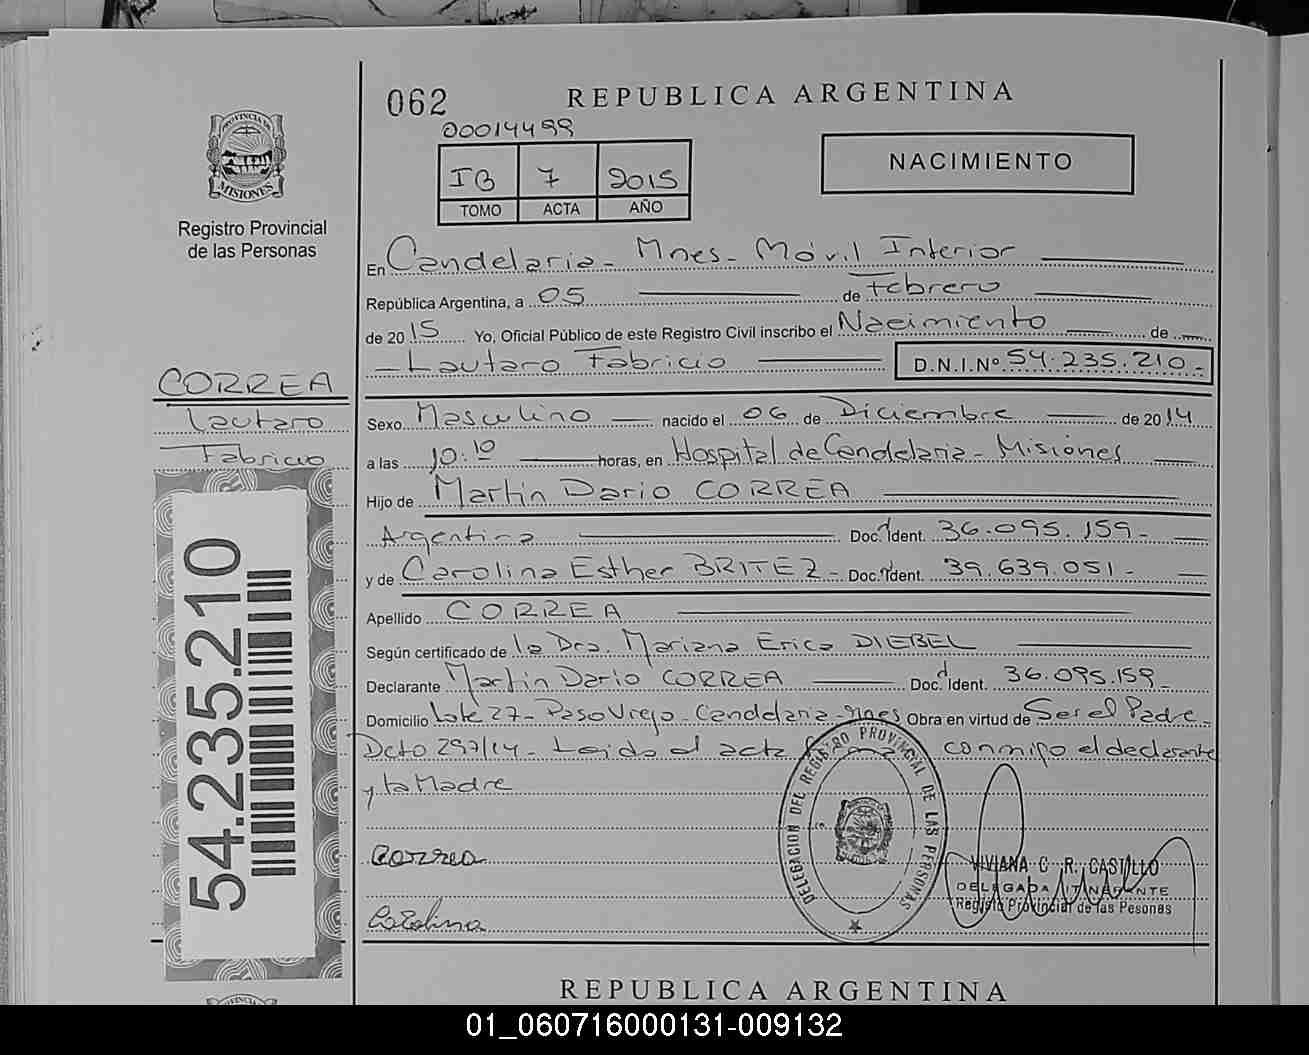 062
REPUBLICA ARGENTINA
00014499
IB 7 2015
TOMO ACTA AÑO
NACIMIENTO
PROVINCIA DE MISIONES
Registro Provincial
de las Personas
En Candelaria - Mnes - Móvil Interior
República Argentina, a 05 de Febrero
de 2015 Yo, Oficial Público de este Registro Civil inscribo el Nacimiento de
Lautaro Fabricio D.N.I.Nº 54.235.210-
CORREA
Lautaro
Fabricio
Sexo Masculino nacido el 06 de Diciembre de 2014
a las 10:10 horas, en Hospital de Candelaria - Misiones
Hijo de Martin Dario CORREA
Argentina Doc. Ident. 36.095.159-
y de Carolina Esther BRITEZ - Doc. Ident. 39.639.051-
Apellido CORREA
Según certificado de la Dra. Mariana Erica DIEBEL
Declarante Martin Dario CORREA Doc. Ident. 36.095.159-
Domicilio Lote 27 - Paso Viejo - Candelaria - Mnes Obra en virtud de Ser el Padre -
Dcto 297/14 - Leida el acta conmigo el declarante
y la Madre
54.235.210
DELEGACION DEL REGISTRO PROVINCIAL DE LAS PERSONAS
Correa
VIVIANA C. R. CASTILLO
DELEGADA ITINERANTE
Registro Provincial de las Pesonas
REPUBLICA ARGENTINA
01_060716000131-009132